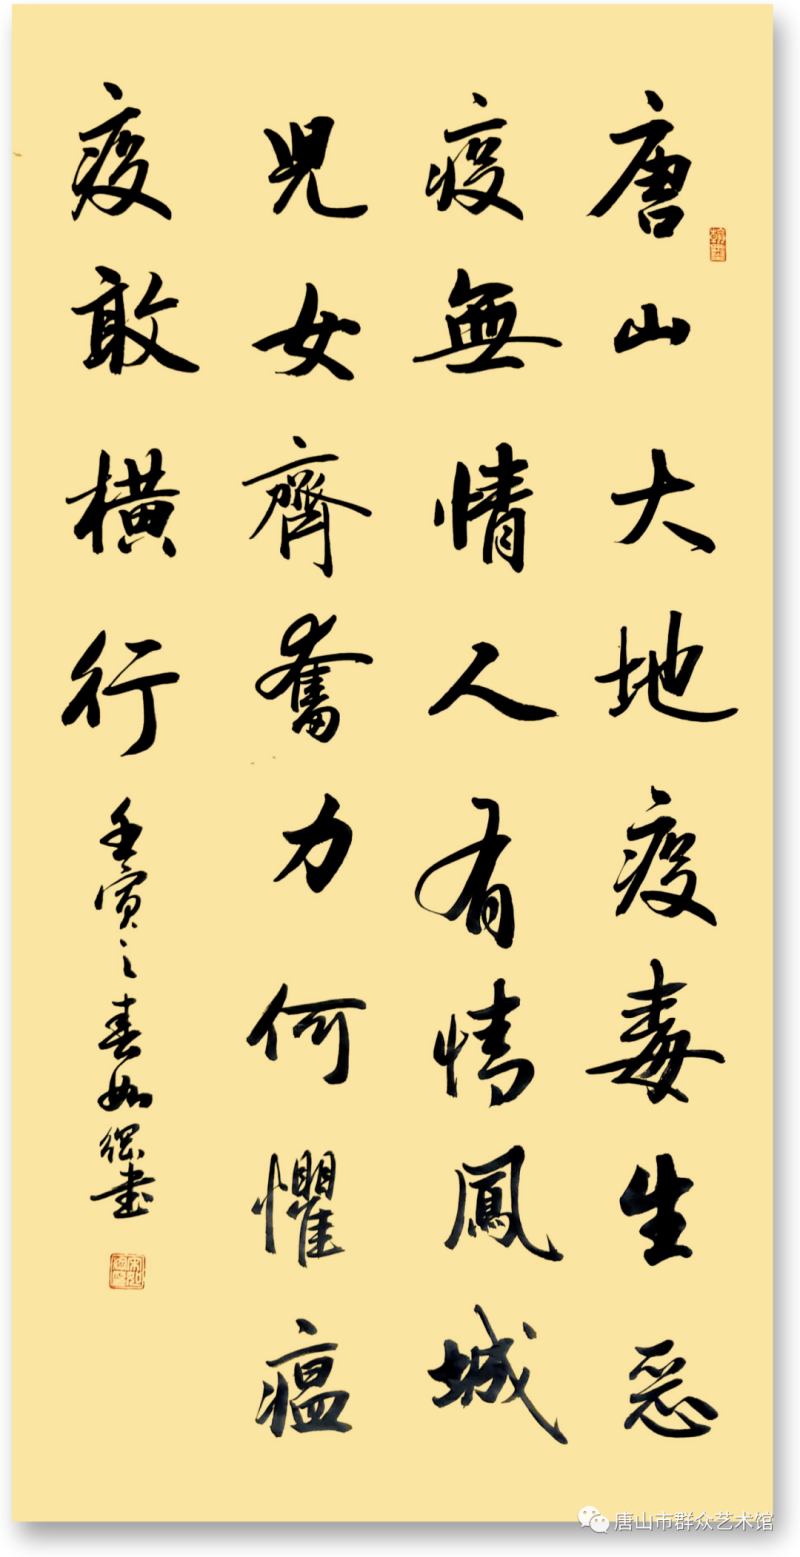 唐山大地疫毒生惡
疫無情人有情鳳城
兒女齊奮力何懼瘟
疫敢橫行
壬寅之春如綱書
唐山市群众艺术馆